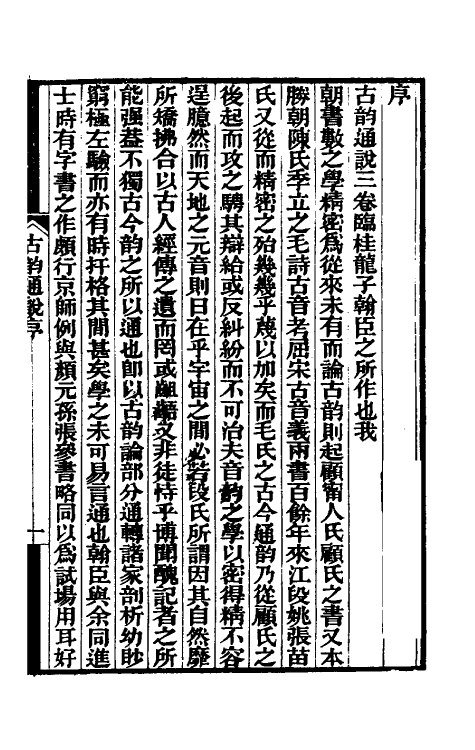 序
古韵通說三卷臨桂龍子翰臣之所作也我
朝書數之學精密爲從來未有而論古韵則起顧甯人氏顧氏之書又本
勝朝陳氏季立之毛詩古音考屈宋古音義兩書百餘年來江段姚張苗
氏又從而精密之殆幾幾乎蔑以加矣而毛氏之古今通韵乃從顧氏之
後起而攻之騁其辯給或反糾紛而不可治夫音韵之學以密得精不容
逞臆然而天地之元音則日在乎宇宙之閒必若段氏所謂因其自然靡
所矯拂合以古人經傳之遺而罔或齟齬又非徒恃乎博聞醜記者之所
能强葢不獨古今韵之所以通也卽以古韵論部分通轉諸家剖析幼眇
窮極左驗而亦有時扞格其閒甚矣學之未可易言通也翰臣與余同進
士時有字書之作頗行京師例與顏元孫張參書略同以爲試場用耳好
古韵通說序
一